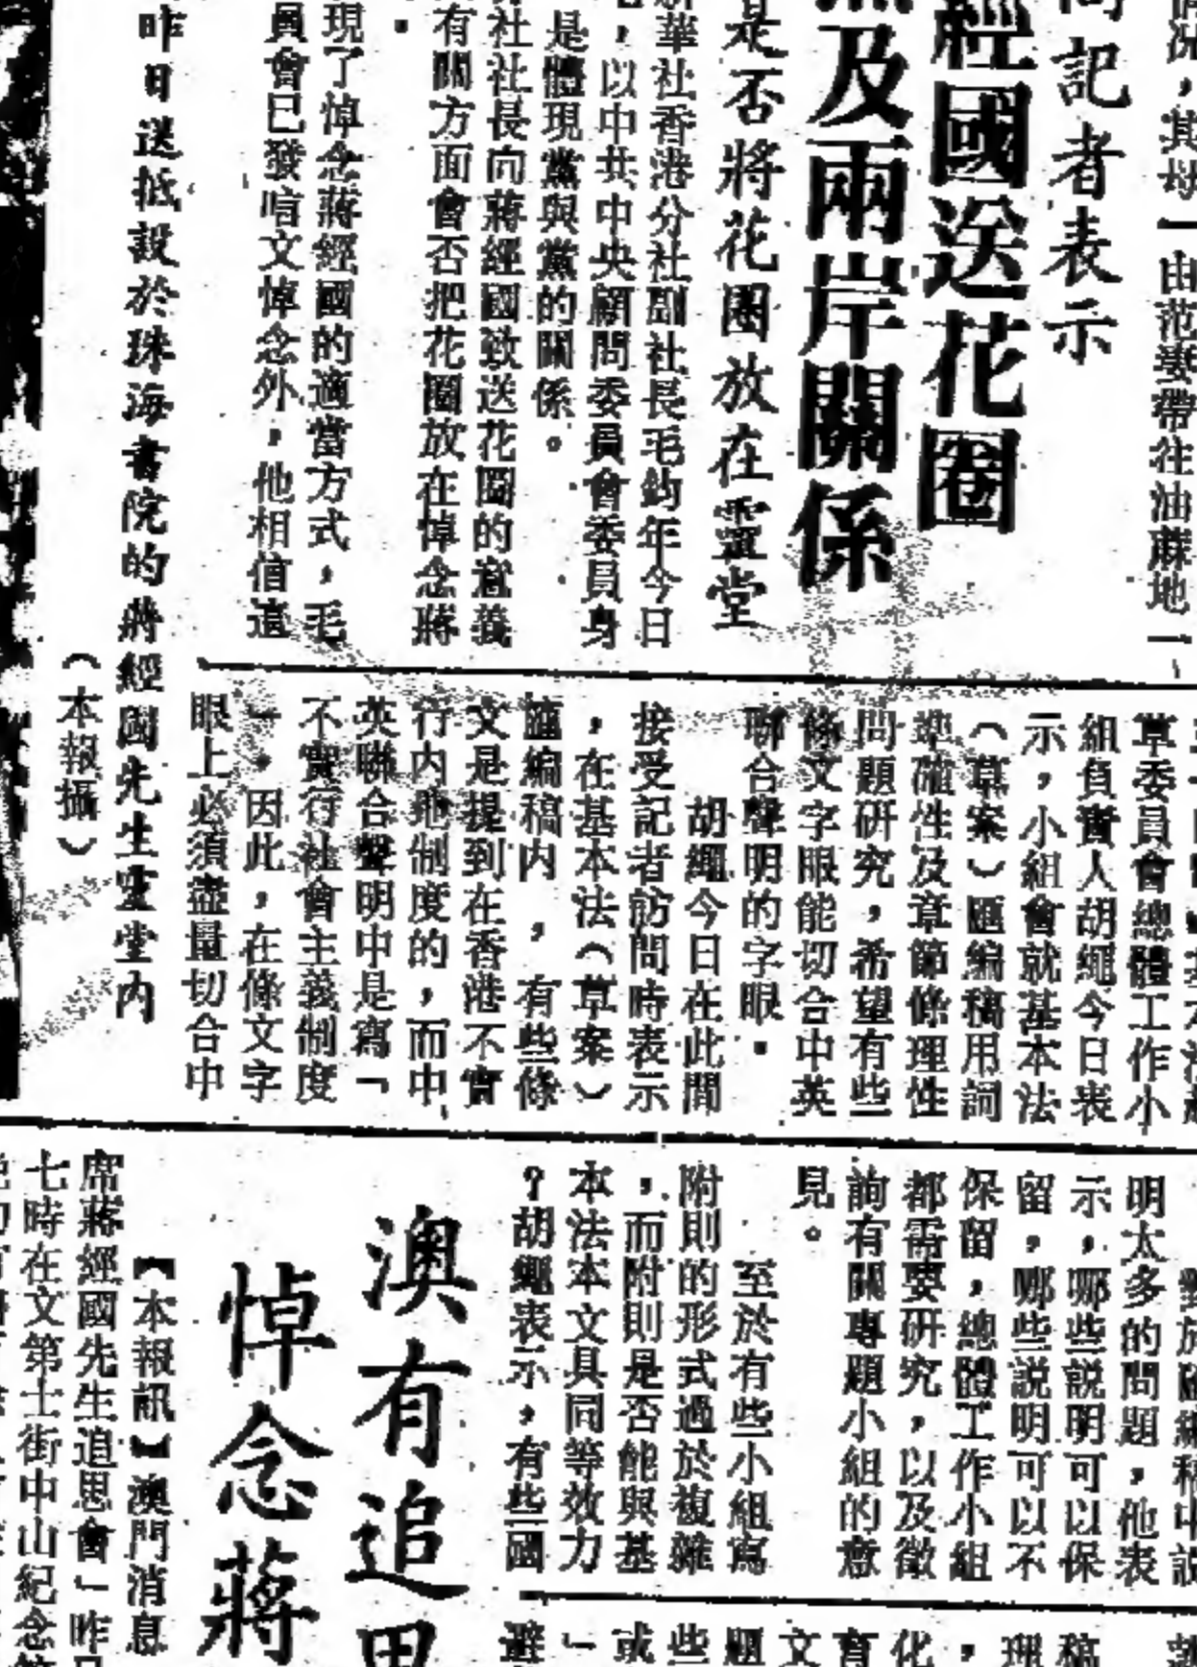 情況，其母一由范婆帶往油蔴地一
問記者表示
經國送花圈
及兩岸關係
是否將花圈放在靈堂
新華社香港分社副社長毛鈞年今日
，以中共中央顧問委員會委員身
是體現黨與黨的關係。
社社長向蔣經國致送花圈的意義
有關方面會否把花圈放在悼念蔣
現了悼念蔣經國的適當方式，毛
員會已發唁文悼念外，他相信這
昨日送抵設於珠海書院的蔣經國先生靈堂內
（本報攝）
草委員會總體工作小
組負責人胡繩今日表
示，小組會就基本法
（草案）匯編稿用詞
準確性及章節條理性
問題研究，希望有些
條文字眼能切合中英
聯合聲明的字眼。
胡繩今日在此間
接受記者訪問時表示
，在基本法（草案）
匯編稿內，有些條
文是提到在香港不實
行內地制度的，而中
英聯合聲明中是寫「
不實行社會主義制度
」，因此，在條文字
眼上必須盡量切合中
對於匯編稿中說
明太多的問題，他表
示，哪些說明可以保
留，哪些說明可以不
保留，總體工作小組
都需要研究，以及徵
詢有關專題小組的意
見。
至於有些小組寫
附則的形式過於複雜
，而附則是否能與基
本法本文具同等效力
？胡繩表示，有些國
澳有追思
悼念蔣
【本報訊】澳門消息
席蔣經國先生追思會」昨
七時在文第士街中山紀念
稿
理
，
化
育
文
題
些
或
」
避